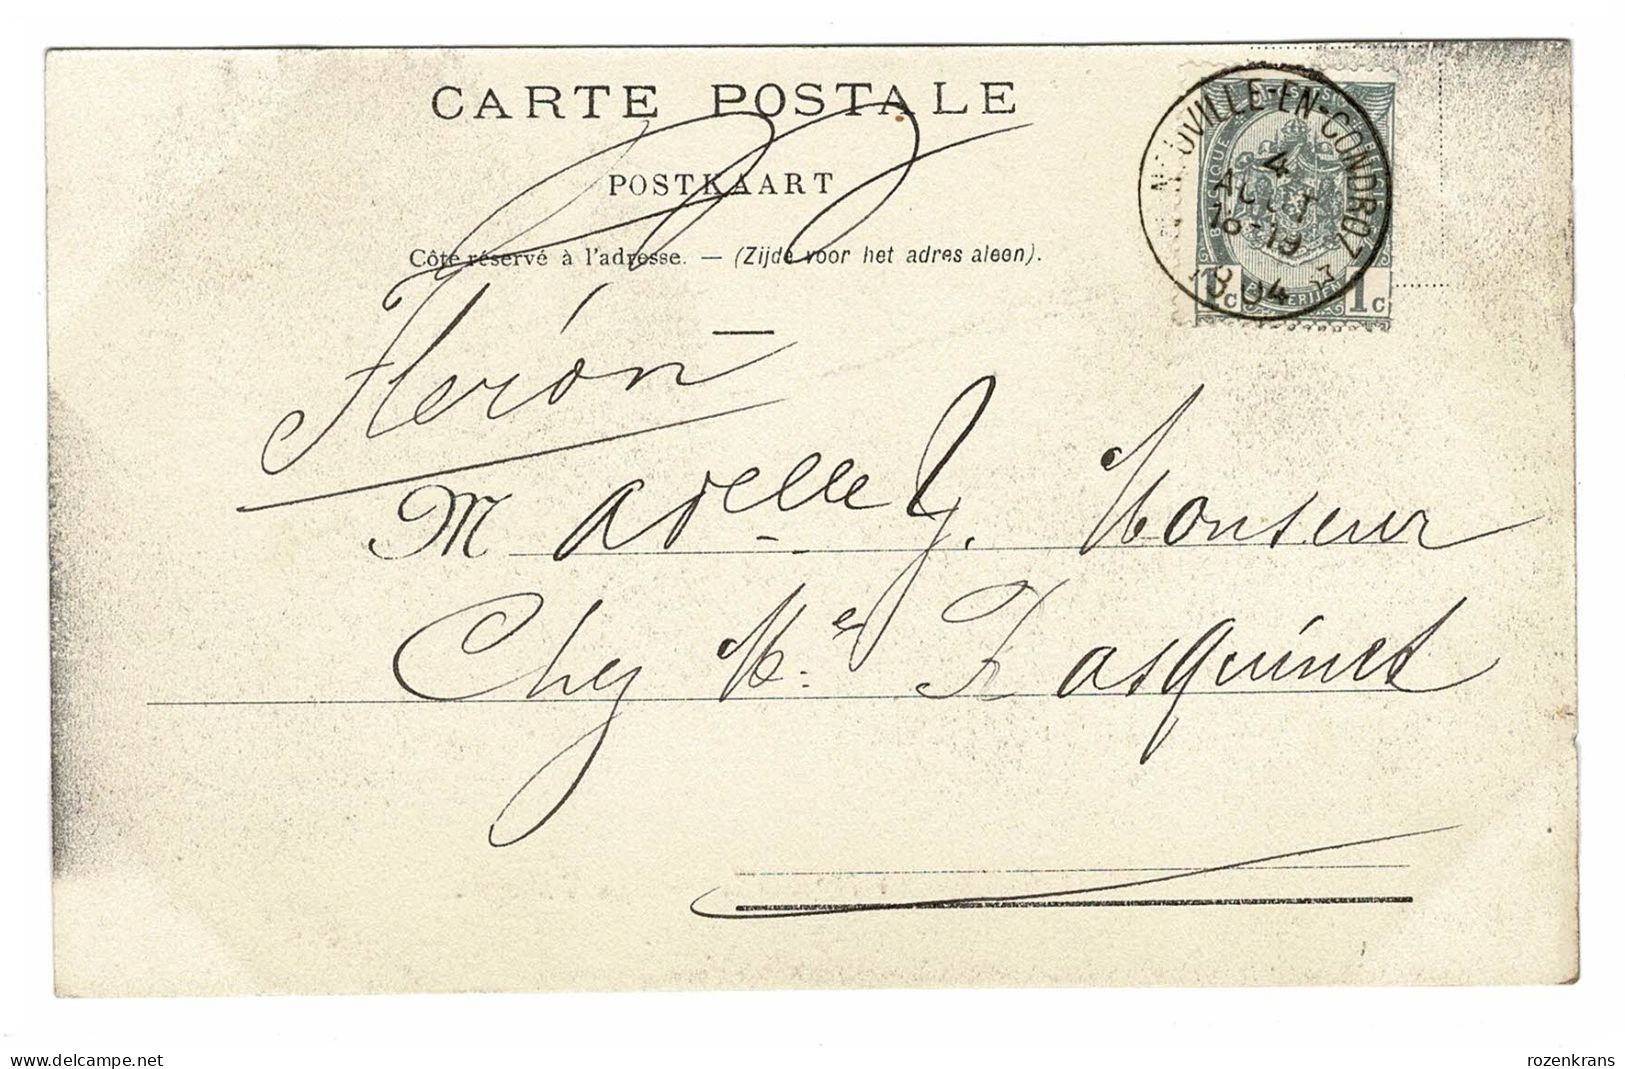 CARTE POSTALE
POSTKAART
Côté réservé à l'adresse. — (Zijde voor het adres aleen).
NEUVILLE-EN-CONDROZ
4
AOUT
18-19
1904
1c 1c
Fléron
Madelle J. Monseur
Chez Me Pasquinet
www.delcampe.net
rozenkrans